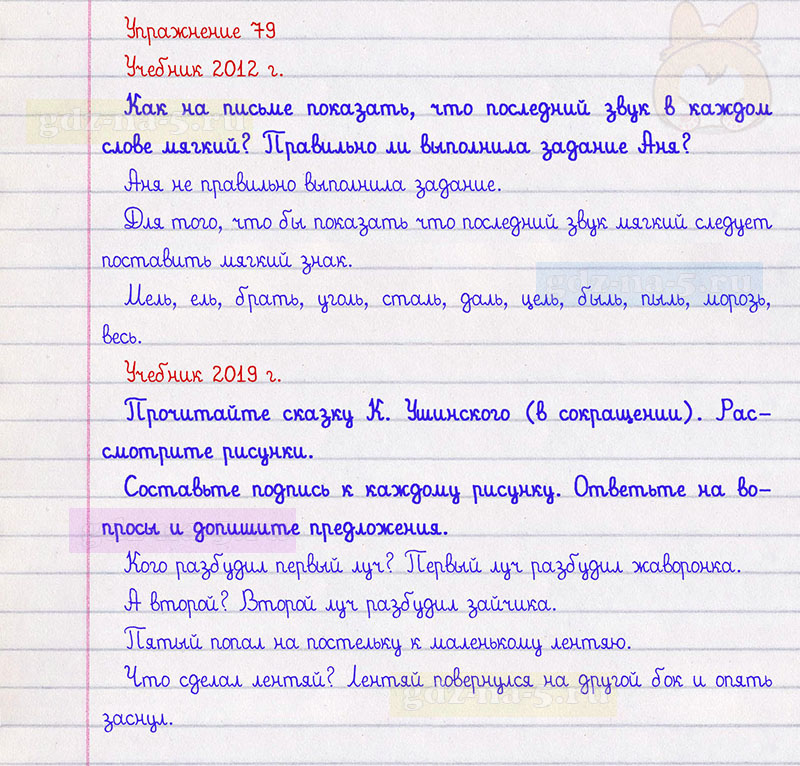 Упражнение 79
Учебник 2012 г.
Как на письме показать, что последний звук в каждом
слове мягкий? Правильно ли выполнила задание Аня?
gdz-na-5.ru
Аня не правильно выполнила задание.
Для того, что бы показать что последний звук мягкий следует
поставить мягкий знак.
gdz-na-5.ru
Мель, ель, брать, уголь, сталь, даль, цель, быль, пыль, морозь,
весь.
Учебник 2019 г.
Прочитайте сказку К. Ушинского (в сокращении). Рас-
смотрите рисунки.
Составьте подпись к каждому рисунку. Ответьте на во-
просы и допишите предложения.
Кого разбудил первый луч? Первый луч разбудил жаворонка.
А второй? Второй луч разбудил зайчика.
Пятый попал на постельку к маленькому лентяю.
Что сделал лентяй? Лентяй повернулся на другой бок и опять
gdz-na-5.ru
заснул.